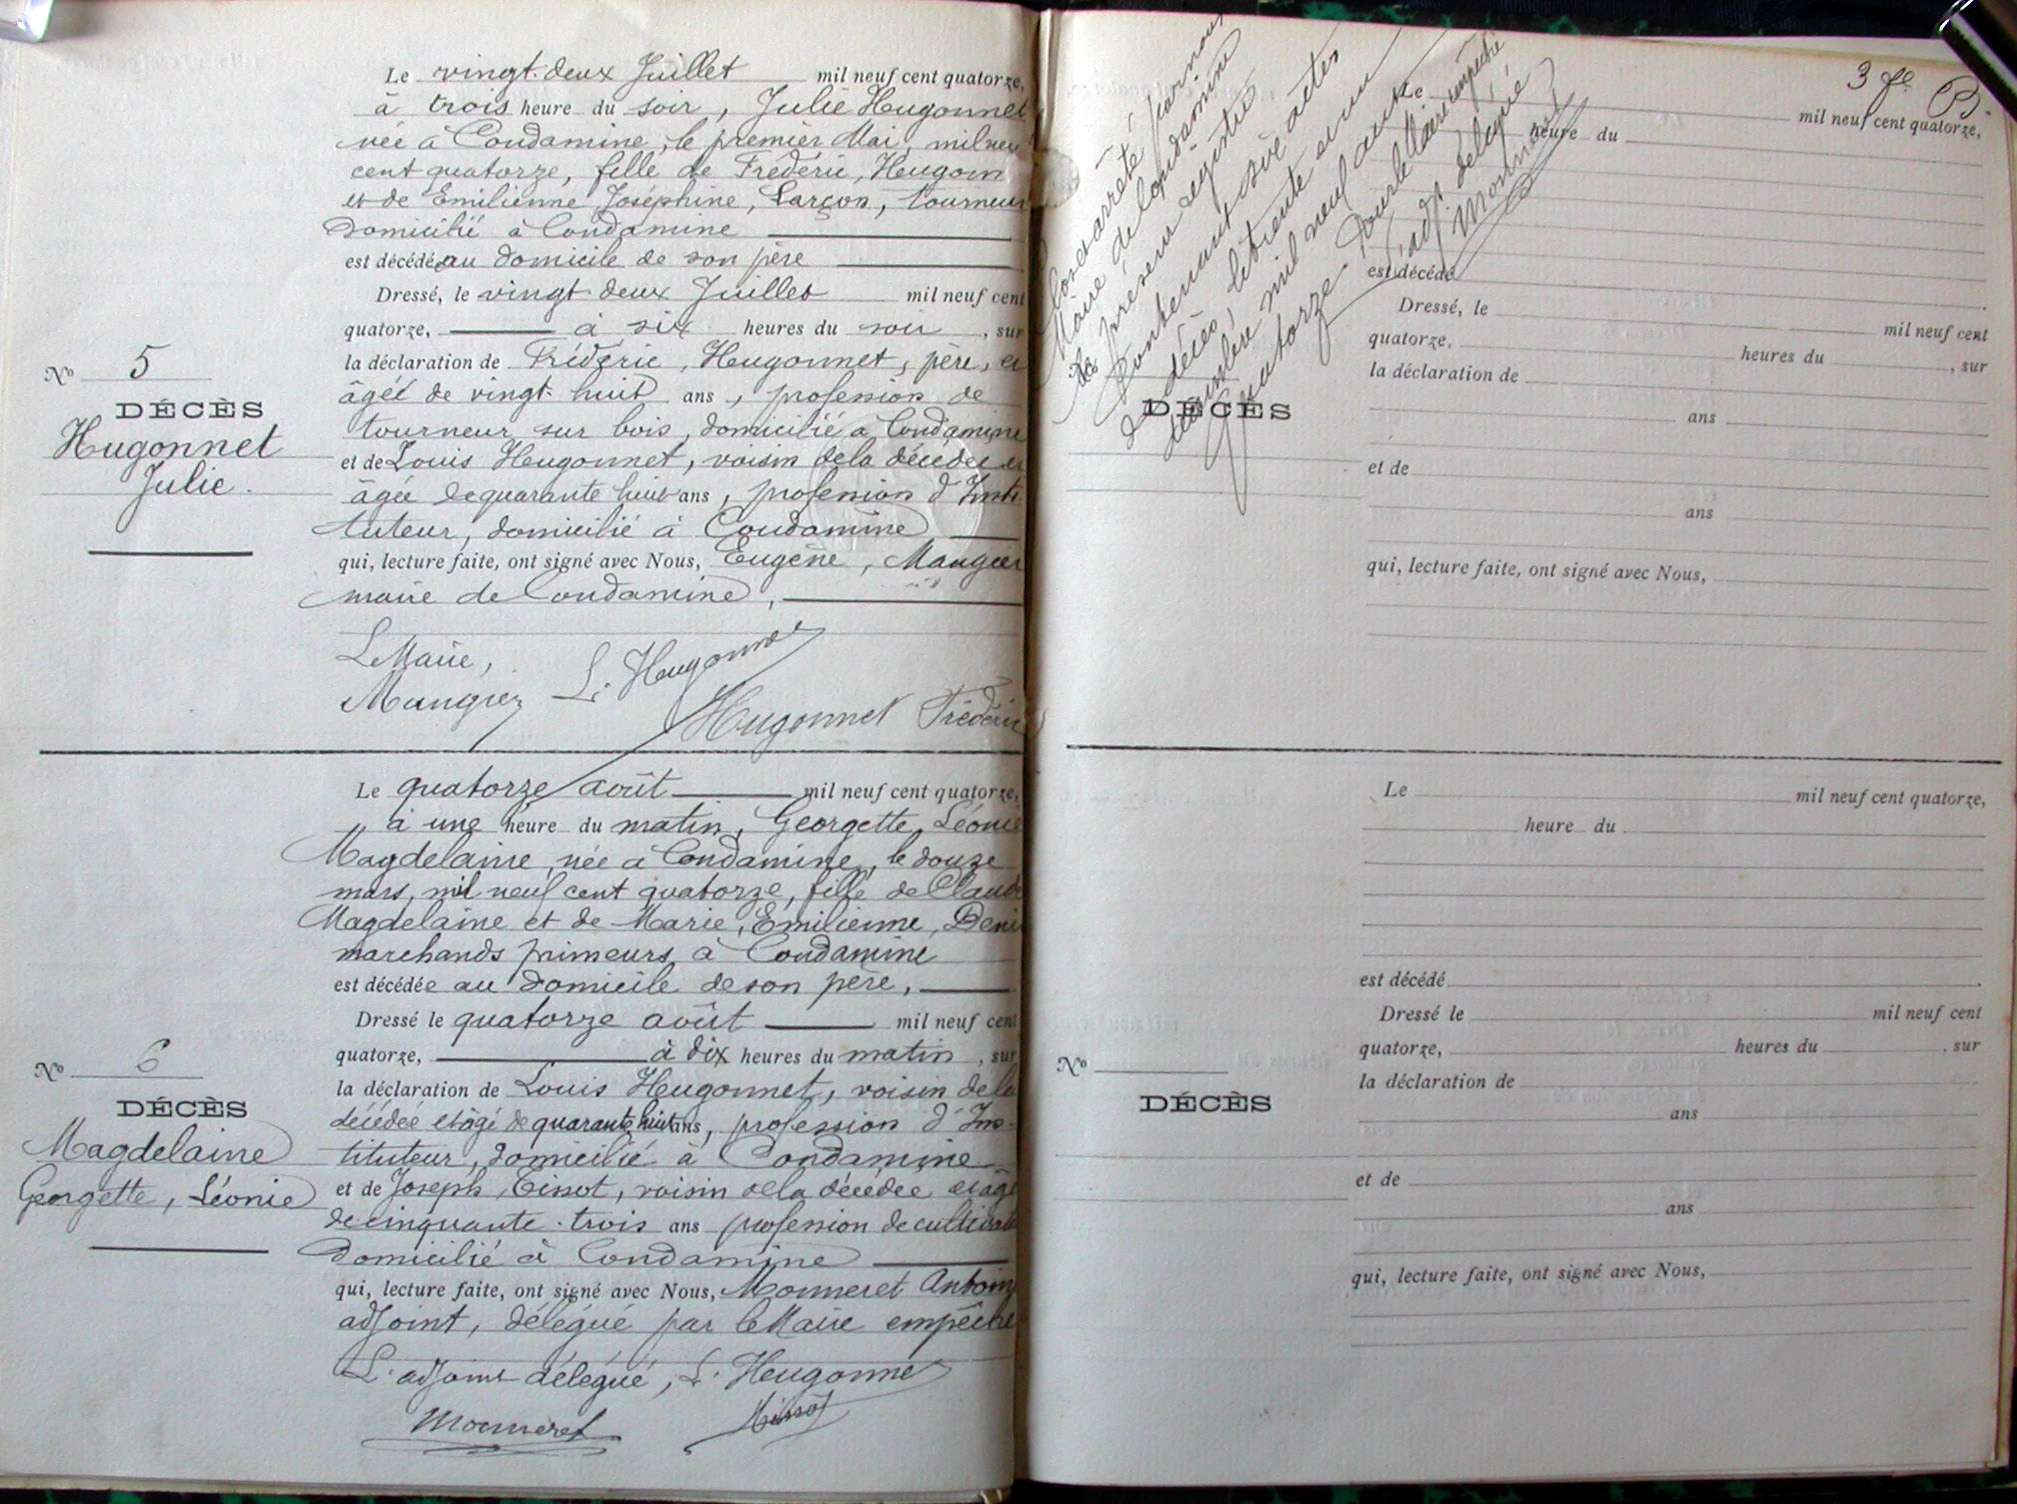 Le vingt-deux Juillet mil neuf cent quatorze,
à trois heure du soir, Julie Hugonnet
née à Condamine, le premier Mai, mil neu
cent quatorze, fille de Frédéric, Hugonn
et de Emilienne Joséphine, Larçon, tourneur
domicilié à Condamine
est décédée au domicile de son père
Dressé, le vingt-deux Juillet mil neuf cent
quatorze, à six heures du soir, sur
la déclaration de Frédéric, Hugonnet, père, et
âgée de vingt-huit ans, profession de
tourneur sur bois, domicilié à Condamine
et de Louis Hugonnet, voisin de la décédée et
âgée de quarante huit ans, profession d'Insti
tuteur, domicilié à Condamine
qui, lecture faite, ont signé avec Nous, Eugène, Mangier
maire de Condamine,
Le Maire,
Mangiez L. Hugonnet
Hugonnet Frédéric
No 5
DÉCÈS
Hugonnet
Julie.
Le quatorze août mil neuf cent quatorze,
à une heure du matin, Georgette, Léonie
Magdelaine, née à Condamine, le douze
mars, mil neuf cent quatorze, fille de Claude
Magdelaine et de Marie, Emilienne, Deni
marchands primeurs à Condamine
est décédée au domicile de son père,
Dressé le quatorze août mil neuf cent
quatorze, à dix heures du matin, sur
la déclaration de Louis Hugonnet, voisin de la
décédée et âgé de quarante huit ans, profession d'Ins-
tituteur, domicilié à Condamine
et de Joseph, Tissot, voisin de la décédée et âgé
de cinquante-trois ans profession de cultivat
domicilié à Condamine
qui, lecture faite, ont signé avec Nous, Monneret Antoin
adjoint, délégué par le Maire empêché
L'adjoint délégué, L. Hugonnet
Monneret Tissot
No 6
DÉCÈS
Magdelaine
Georgette, Léonie
3 fe B.
Clos et arrêté par nous
Maire de Condamine
le présent registre
Contenant six actes
de décès, le trente et un
décembre mil neuf cent
quatorze. Pour le Maire empêché
l'adjt délégué
Monneret
Le mil neuf cent quatorze,
heure du
est décédé
Dressé, le mil neuf cent
quatorze, heures du , sur
la déclaration de
ans
et de
ans
qui, lecture faite, ont signé avec Nous,
No
DÉCÈS
Le mil neuf cent quatorze,
heure du
est décédé
Dressé le mil neuf cent
quatorze, heures du , sur
la déclaration de
ans
et de
ans
qui, lecture faite, ont signé avec Nous,
No
DÉCÈS